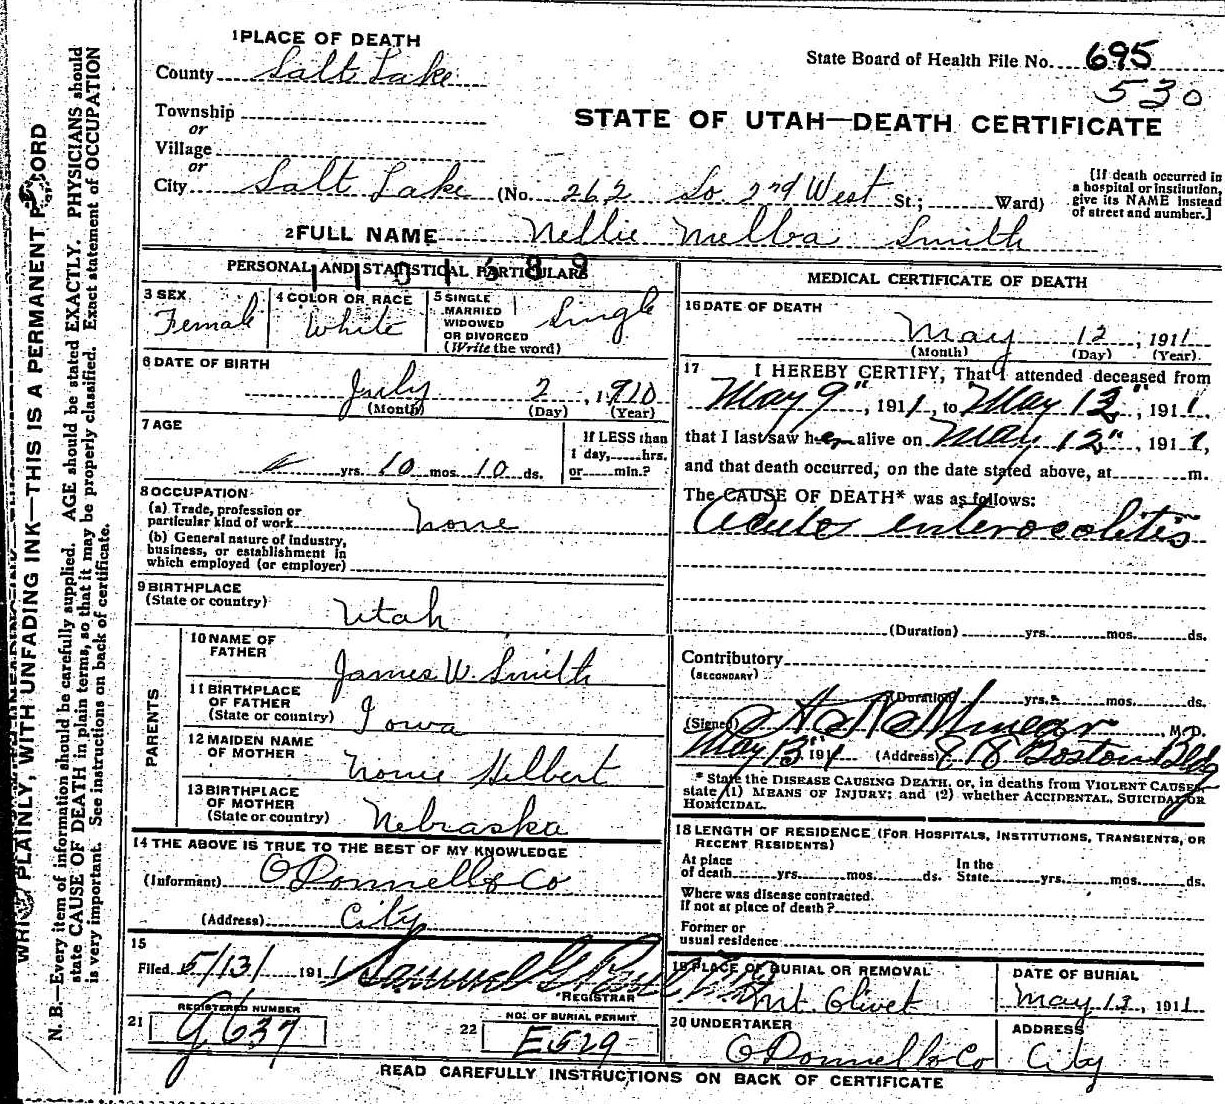 1 PLACE OF DEATH
County Salt Lake
State Board of Health File No. 695
530
Township
or
Village
or
STATE OF UTAH—DEATH CERTIFICATE
City Salt Lake (No. 262 So. 2nd West St.; Ward)
[If death occurred in a hospital or institution, give its NAME instead of street and number.]
2 FULL NAME Nellie Melba Smith
PERSONAL AND STATISTICAL PARTICULARS
3 SEX Female
4 COLOR OR RACE White
5 SINGLE MARRIED WIDOWED OR DIVORCED (Write the word) Single
6 DATE OF BIRTH
July 2, 1910
(Month) (Day) (Year)
7 AGE
yrs. 10 mos. 10 ds.
If LESS than 1 day, hrs. or min.?
8 OCCUPATION
(a) Trade, profession or particular kind of work None
(b) General nature of industry, business, or establishment in which employed (or employer)
9 BIRTHPLACE
(State or country) Utah
PARENTS
10 NAME OF FATHER James W. Smith
11 BIRTHPLACE OF FATHER (State or country) Iowa
12 MAIDEN NAME OF MOTHER Nonie Hilbert
13 BIRTHPLACE OF MOTHER (State or country) Nebraska
14 THE ABOVE IS TRUE TO THE BEST OF MY KNOWLEDGE
(Informant) O'Donnell & Co
(Address) City
15
Filed 5/13/ 1911 Samuel G.
REGISTRAR
REGISTERED NUMBER
21 G637
NO. OF BURIAL PERMIT
22 E529
MEDICAL CERTIFICATE OF DEATH
16 DATE OF DEATH
May 12, 1911
(Month) (Day) (Year.)
17 I HEREBY CERTIFY, That I attended deceased from
May 9", 1911, to May 12", 1911.
that I last saw her alive on May 12", 1911,
and that death occurred, on the date stated above, at m.
The CAUSE OF DEATH* was as follows:
Acute enterocolitis
(Duration) yrs. mos. ds.
Contributory
(SECONDARY)
(Duration) yrs. mos. ds.
(Signed) M.D.
May 13", 1911 (Address) 818 Boston Bldg
* State the DISEASE CAUSING DEATH, or, in deaths from VIOLENT CAUSES, state (1) MEANS OF INJURY; and (2) whether ACCIDENTAL, SUICIDAL OR HOMICIDAL.
18 LENGTH OF RESIDENCE (FOR HOSPITALS, INSTITUTIONS, TRANSIENTS, OR RECENT RESIDENTS)
At place of death yrs. mos. ds. In the State yrs. mos. ds.
Where was disease contracted. If not at place of death?
Former or usual residence
19 PLACE OF BURIAL OR REMOVAL Mt. Olivet
DATE OF BURIAL May 13, 1911
20 UNDERTAKER O'Donnell & Co
ADDRESS City
READ CAREFULLY INSTRUCTIONS ON BACK OF CERTIFICATE
WRITE PLAINLY, WITH UNFADING INK—THIS IS A PERMANENT RECORD
N. B.—Every item of information should be carefully supplied. AGE should be stated EXACTLY. PHYSICIANS should
state CAUSE OF DEATH in plain terms, so that it may be properly classified. Exact statement of OCCUPATION
is very important. See instructions on back of certificate.